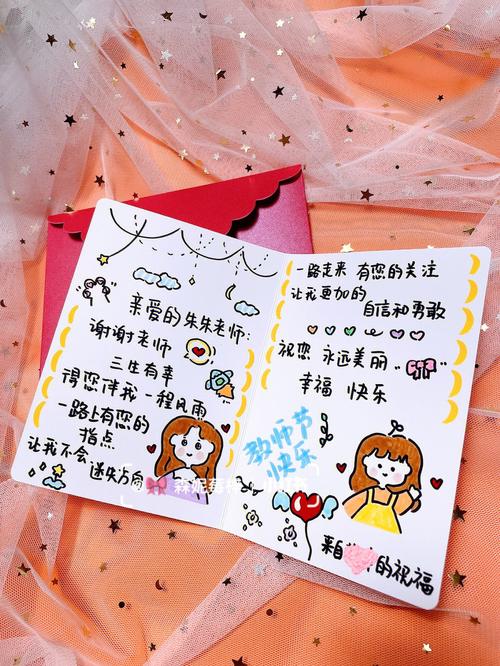 亲爱的朱朱老师:
谢谢老师
三生有幸
得您伴我一程风雨
一路上有您的
指点
让我不会迷失方向
一路走来 有您的关注
让我更加的
自信和勇敢
祝您 永远美丽
幸福 快乐
教师节
快乐
来自 的祝福